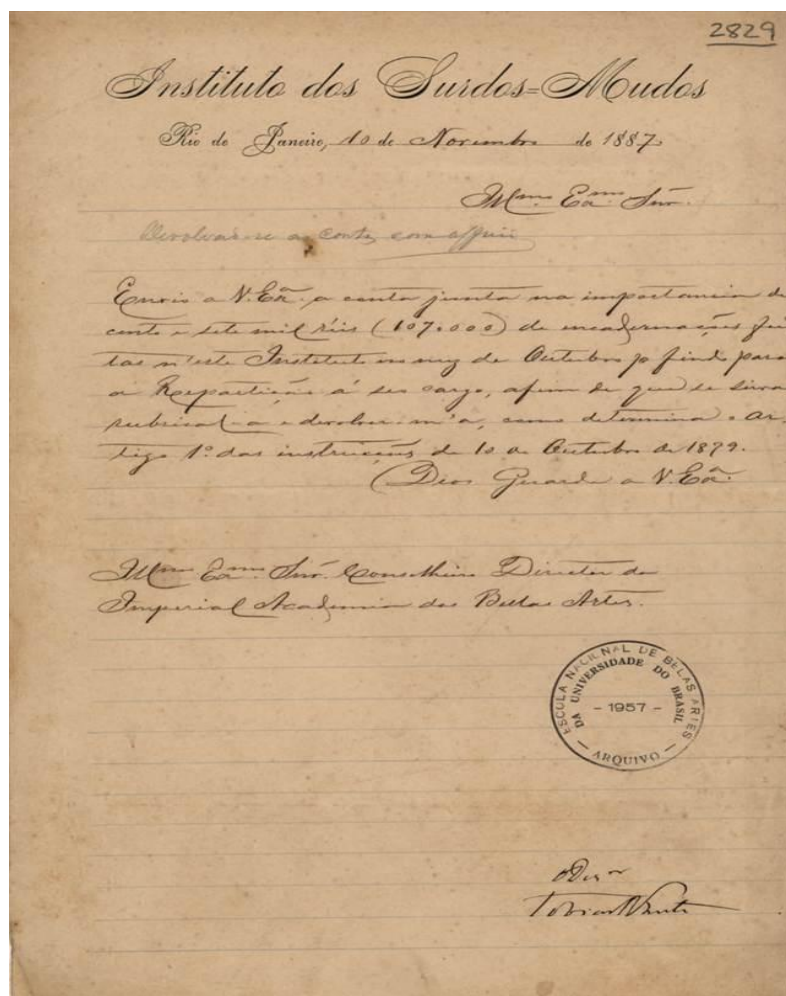 2829
Instituto dos Surdos=Mudos
Rio de Janeiro, 10 de Novembro de 1887
Illmo. Exmo. Snr.
Devolva-se a conta, com officio
Envio a V. Exa. a conta junta na importancia de
cento e sete mil réis (107.000) de encadernações fei
tas n'este Instituto no mez de Outubro p. findo para
a Repartição á seu cargo, afim de que se sirva
rubrical-a e devolver-m'a, como determina o Ar
tigo 1º das instrucções de 10 de Outubro de 1879.
Deos Guarde a V. Exa.
Illmo. Exmo. Snr. Conselheiro Director da
Imperial Academia das Bellas Artes.
ESCOLA NACIONAL DE BELAS ARTES
DA UNIVERSIDADE DO BRASIL
- 1957 -
ARQUIVO
O Dir.or
Tobias Leite